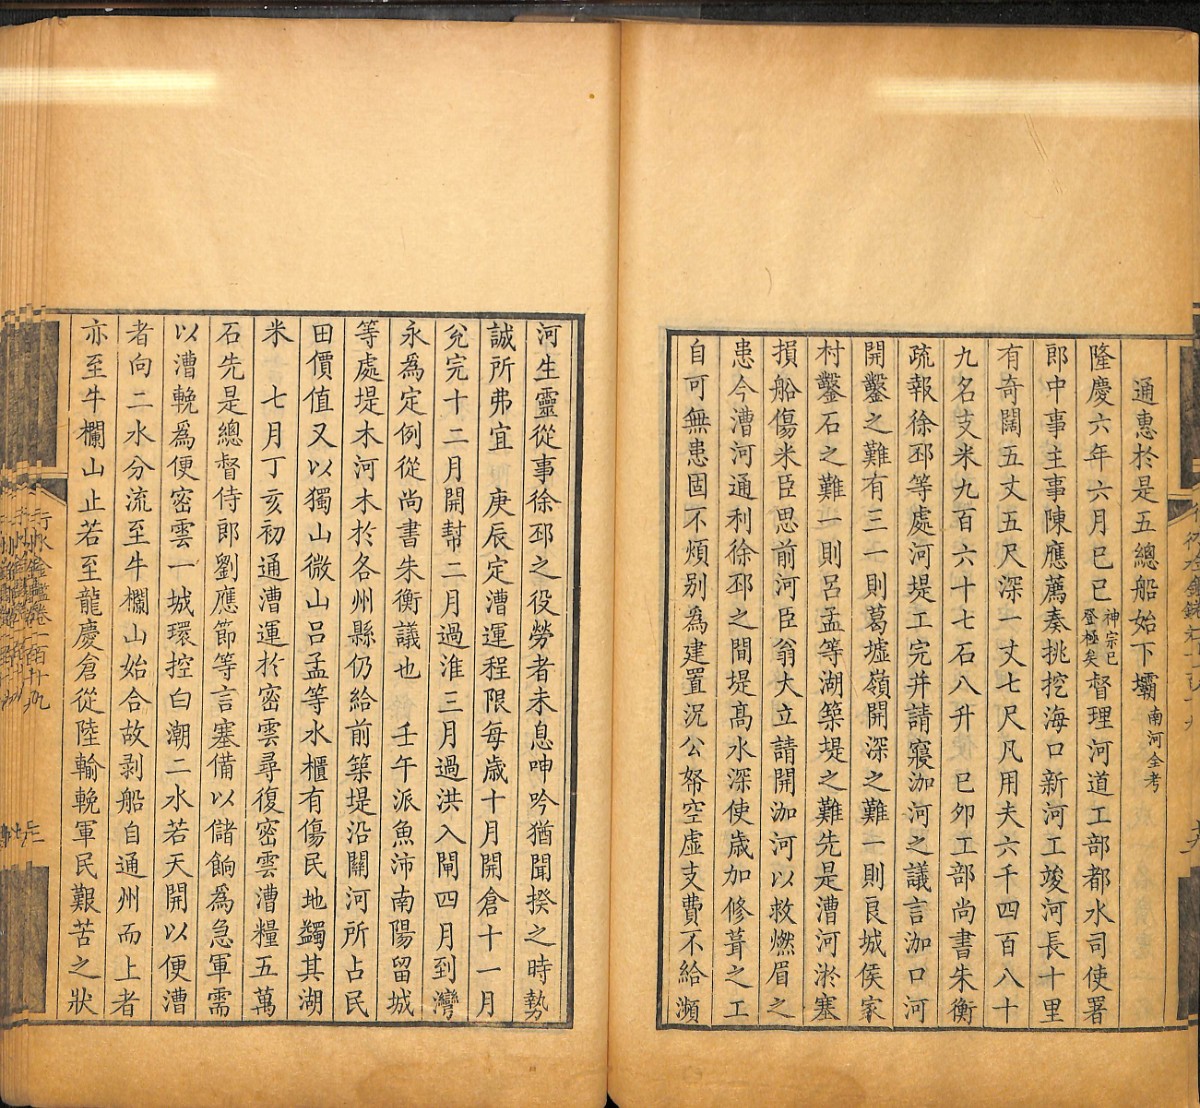 通惠於是五總船始下壩南河全考
隆慶六年六月已巳神宗已登極矣督理河道工部都水司使署
郎中事主事陳應薦奏挑挖海口新河工竣河長十里
有奇闊五丈五尺深一丈七尺凡用夫六千四百八十
九名支米九百六十七石八升　已夘工部尚書朱衡
疏報徐邳等處河堤工完并請寢泇河之議言泇口河
開鑿之難有三一則葛墟嶺開深之難一則良城侯家
村鑿石之難一則呂孟等湖築堤之難先是漕河淤塞
損船傷米臣思前河臣翁大立請開泇河以救燃眉之
患今漕河通利徐邳之間堤髙水深使歲加修葺之工
自可無患固不煩别為建置況公帑空虛支費不給瀕
河生靈從事徐邳之役勞者未息呻吟猶聞揆之時勢
誠所弗宜　庚辰定漕運程限每歲十月開倉十一月
兊完十二月開幫二月過淮三月過洪入閘四月到灣
永為定例從尚書朱衡議也　壬午派魚沛南陽留城
等處堤木河木於各州縣仍給前築堤沿關河所占民
田價值又以獨山微山呂孟等水櫃有傷民地蠲其湖
米　七月丁亥初通漕運於密雲尋復密雲漕糧五萬
石先是總督侍郎劉應節等言塞備以儲餉為急軍需
以漕輓爲便密雲一城環控白潮二水若天開以便漕
者向二水分流至牛欄山始合故剥船自通州而上者
亦至牛欄山止若至龍慶倉從陸輸輓軍民艱苦之狀
行水金鑑卷一百十九